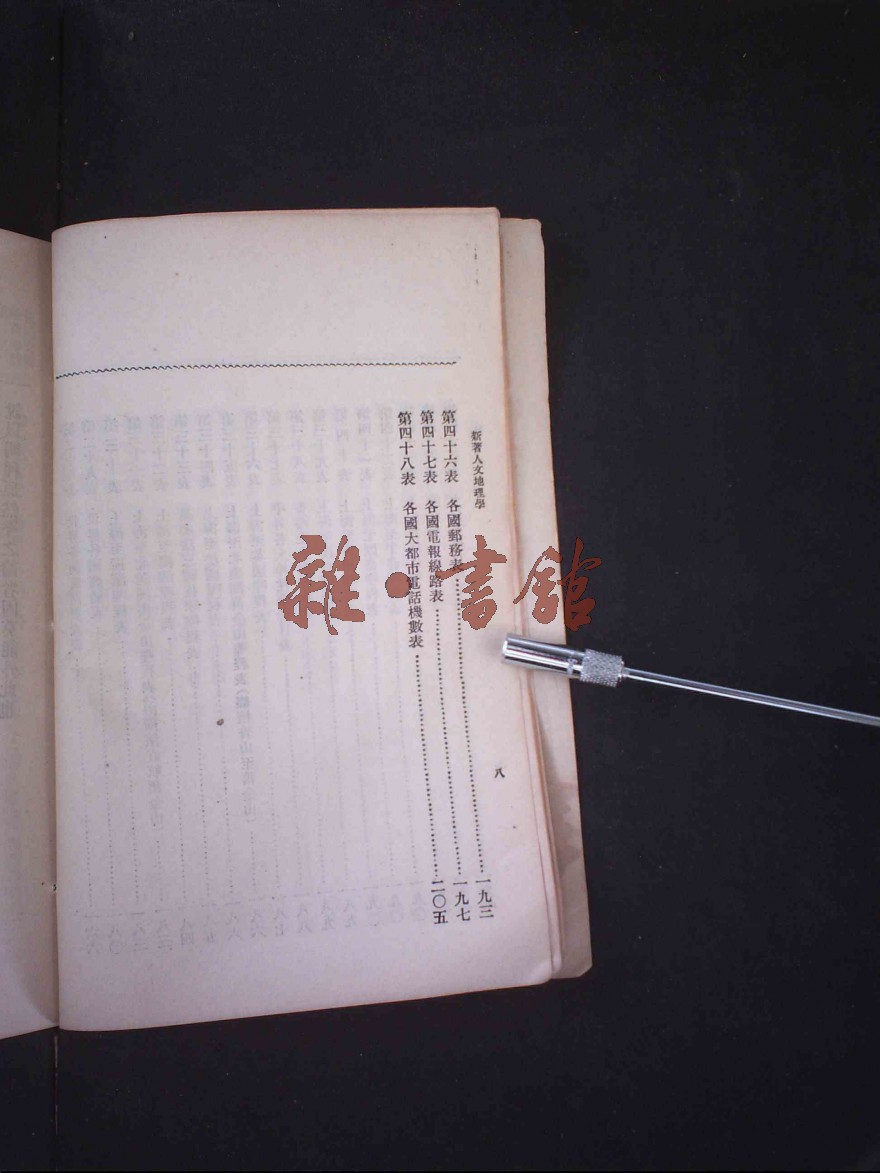 新著人文地理學
八
第四十六表　各國郵務表……一九三
第四十七表　各國電報線路表……一九七
第四十八表　各國大都市電話機數表……二〇五
雜·書館